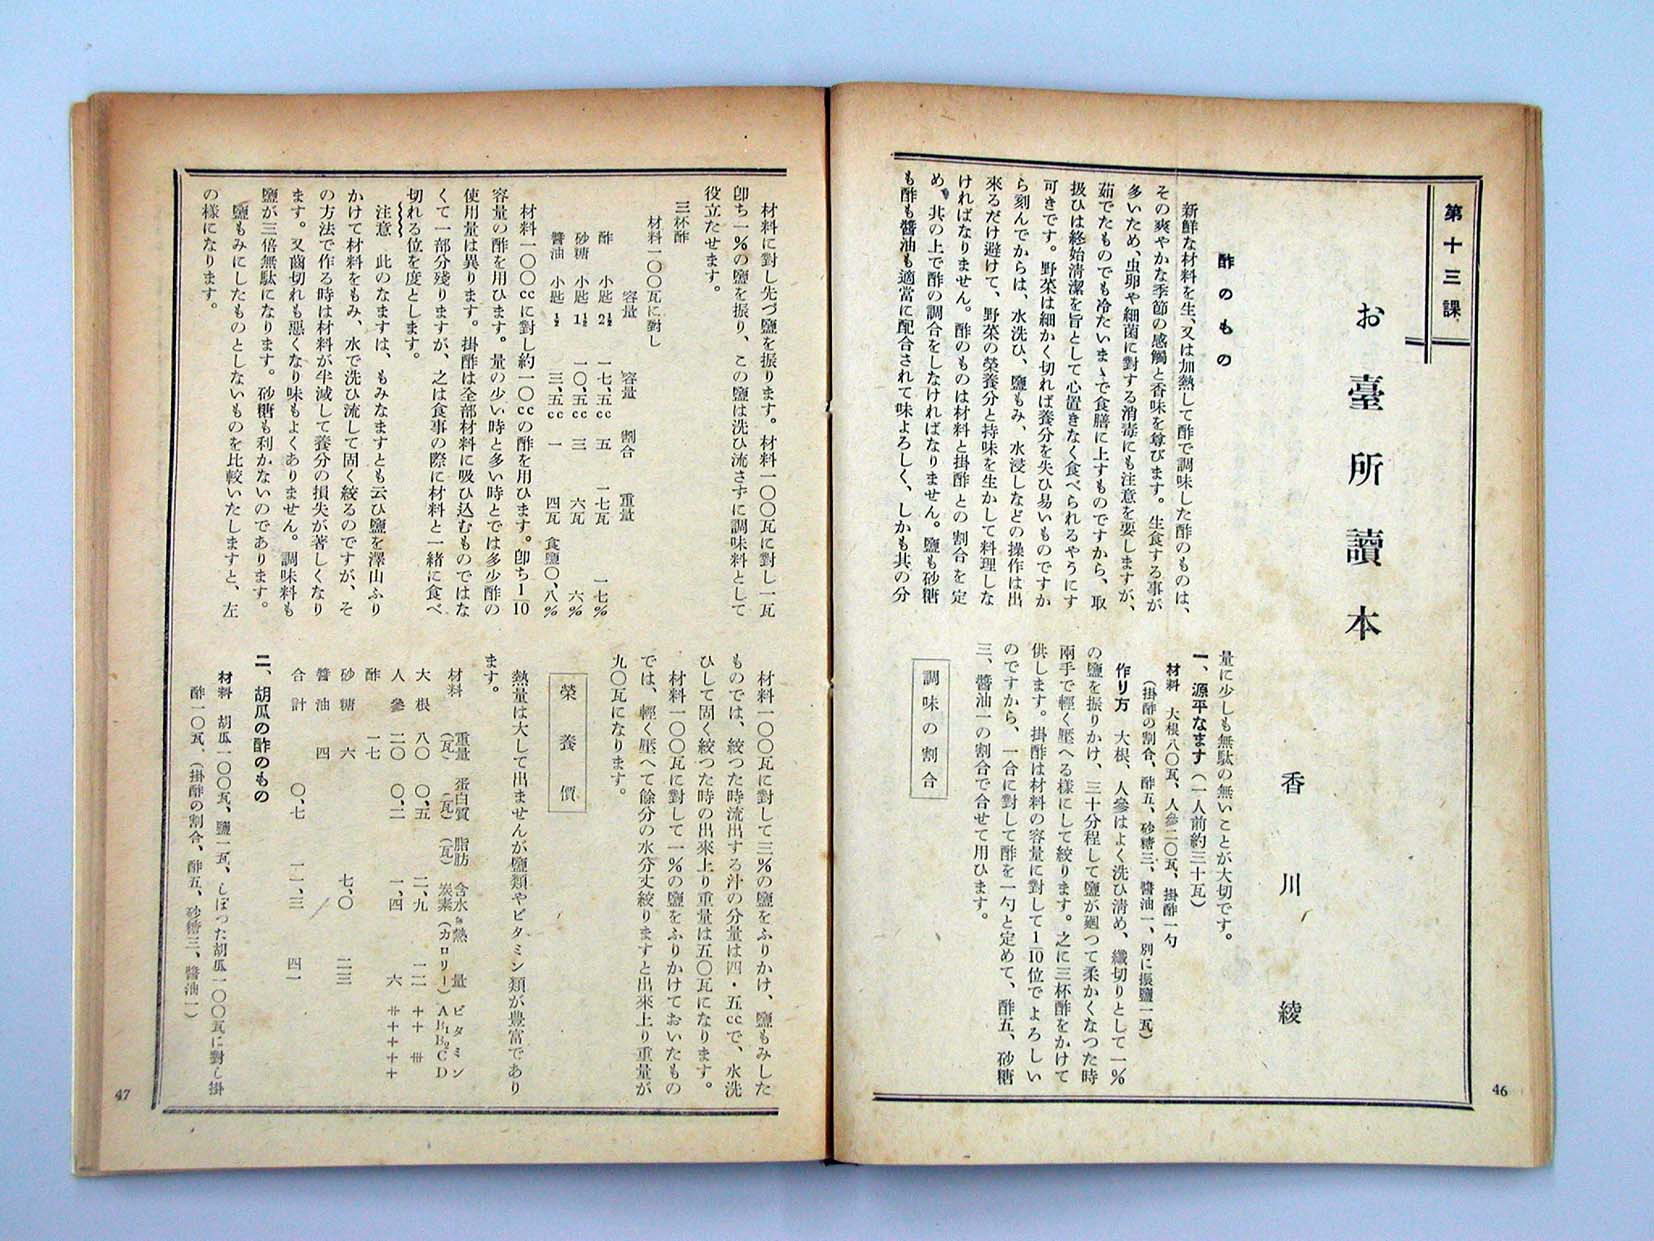 第十三課
お臺所讀本
香川綾
酢のもの
新鮮な材料を生、又は加熱して酢で調味した酢のものは、
その爽やかな季節の感觸と香味を尊びます。生食する事が
多いため、虫卵や細菌に對する消毒にも注意を要しますが、
茹でたものでも冷たいまゝで食膳に上すものですから、取
扱ひは終始清潔を旨として心置きなく食べられるやうにす
可きです。野菜は細かく切れば養分を失ひ易いものですか
ら刻んでからは、水洗ひ、鹽もみ、水浸しなどの操作は出
來るだけ避けて、野菜の榮養分と持味を生かして料理しな
ければなりません。酢のものは材料と掛酢との割合を定
め、其の上で酢の調合をしなければなりません。鹽も砂糖
も酢も醬油も適當に配合されて味よろしく、しかも其の分
量に少しも無駄の無いことが大切です。
一、源平なます（一人前約三十瓦）
材料 大根八〇瓦、人參二〇瓦、掛酢一勺
（掛酢の割合、酢五、砂糖三、醬油一、別に振鹽一瓦）
作り方 大根、人參はよく洗ひ清め、纖切りとして一％
の鹽を振りかけ、三十分程して鹽が廻つて柔かくなつた時
兩手で輕く壓へる樣にして絞ります。之に三杯酢をかけて
供します。掛酢は材料の容量に對して1/10位でよろしい
のですから、一合に對して酢を一勺と定めて、酢五、砂糖
三、醬油一の割合で合せて用ひます。
調味の割合
46
材料に對し先づ鹽を振ります。材料一〇〇瓦に對し一瓦
卽ち一％の鹽を振り、この鹽は洗ひ流さずに調味料として
役立たせます。
三杯酢
材料一〇〇瓦に對し
容量 容量 割合 重量
酢 小匙 2½ 一七、五cc 五 一七瓦 一七％
砂糖 小匙 1½ 一〇、五cc 三 六瓦 六％
醬油 小匙 ½ 三、五cc 一 四瓦 食鹽〇、八％
材料一〇〇ccに對し約一〇ccの酢を用ひます。卽ち1/10
容量の酢を用ひます。量の少い時と多い時とでは多少酢の
使用量は異ります。掛酢は全部材料に吸ひ込むものではな
くて一部分殘りますが、之は食事の際に材料と一緒に食べ
切れる位を度とします。
注意 此のなますは、もみなますとも云ひ鹽を澤山ふり
かけて材料をもみ、水で洗ひ流して固く絞るのですが、そ
の方法で作る時は材料が半減して養分の損失が著しくなり
ます。又齒切れも惡くなり味もよくありません。調味料も
鹽が三倍無駄になります。砂糖も利かないのであります。
鹽もみにしたものとしないものを比較いたしますと、左
の樣になります。
材料一〇〇瓦に對して三％の鹽をふりかけ、鹽もみした
ものでは、絞つた時流出する汁の分量は四・五ccで、水洗
ひして固く絞つた時の出來上り重量は五〇瓦になります。
材料一〇〇瓦に對して一％の鹽をふりかけておいたもの
では、輕く壓へて餘分の水分丈絞りますと出來上り重量が
九〇瓦になります。
榮養價
熱量は大して出ませんが鹽類やビタミン類が豊富であり
ます。
材料 重量（瓦） 蛋白質（瓦） 脂肪（瓦） 含水炭素 熱量（カロリー） ビタミン A B₁ B₂ C D
大根 八〇 〇、五 二、九 一二 ＋＋ ⧻
人參 二〇 〇、二 一、四 六 ⧺＋＋＋＋
酢 一七
砂糖 六 七、〇 二三
醬油 四
合計 〇、七 一一、三 四一
二、胡瓜の酢のもの
材料 胡瓜一〇〇瓦、鹽一瓦、しぼつた胡瓜一〇〇瓦に對し掛
酢一〇瓦、（掛酢の割合、酢五、砂糖三、醬油一）
47